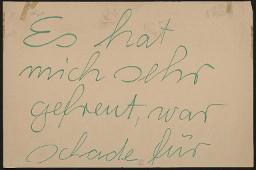 Es hat
mich sehr
gefreut, war
schade für